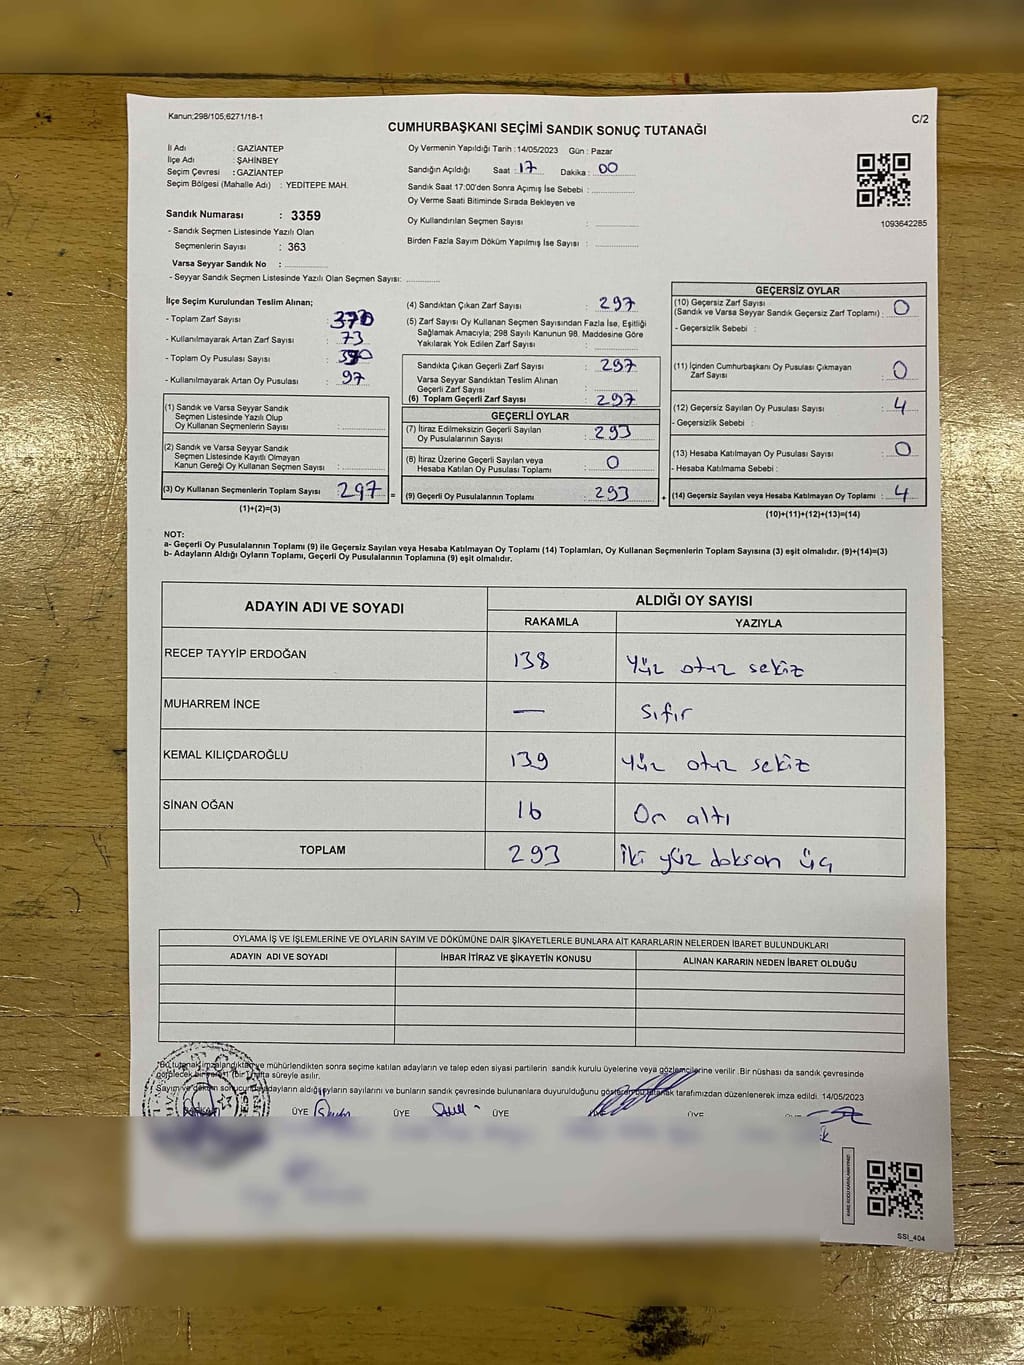 Kanun;298/105;6271/18-1
C/2
CUMHURBAŞKANI SEÇİMİ SANDIK SONUÇ TUTANAĞI
İl Adı : GAZİANTEP
İlçe Adı : ŞAHİNBEY
Seçim Çevresi : GAZİANTEP
Seçim Bölgesi (Mahalle Adı) : YEDİTEPE MAH.
Sandık Numarası : 3359
- Sandık Seçmen Listesinde Yazılı Olan
Seçmenlerin Sayısı : 363
Varsa Seyyar Sandık No :
- Seyyar Sandık Seçmen Listesinde Yazılı Olan Seçmen Sayısı:
Oy Vermenin Yapıldığı Tarih :14/05/2023 Gün : Pazar
Sandığın Açıldığı Saat : 17 Dakika : 00
Sandık Saat 17:00'den Sonra Açımış İse Sebebi :
Oy Verme Saati Bitiminde Sırada Bekleyen ve
Oy Kullandırılan Seçmen Sayısı :
Birden Fazla Sayım Döküm Yapılmış İse Sayısı :
1093642285
İlçe Seçim Kurulundan Teslim Alınan;
- Toplam Zarf Sayısı : 370
- Kullanılmayarak Artan Zarf Sayısı : 73
- Toplam Oy Pusulası Sayısı : 390
- Kullanılmayarak Artan Oy Pusulası : 97
(1) Sandık ve Varsa Seyyar Sandık
Seçmen Listesinde Yazılı Olup
Oy Kullanan Seçmenlerin Sayısı :
(2) Sandık ve Varsa Seyyar Sandık
Seçmen Listesinde Kayıtlı Olmayan
Kanun Gereği Oy Kullanan Seçmen Sayısı :
(3) Oy Kullanan Seçmenlerin Toplam Sayısı : 297 =
(1)+(2)=(3)
(4) Sandıktan Çıkan Zarf Sayısı : 297
(5) Zarf Sayısı Oy Kullanan Seçmen Sayısından Fazla İse, Eşitliği
Sağlamak Amacıyla; 298 Sayılı Kanunun 98. Maddesine Göre
Yakılarak Yok Edilen Zarf Sayısı :
Sandıkta Çıkan Geçerli Zarf Sayısı : 297
Varsa Seyyar Sandıktan Teslim Alınan
Geçerli Zarf Sayısı :
(6) Toplam Geçerli Zarf Sayısı : 297
GEÇERLİ OYLAR
(7) İtiraz Edilmeksizin Geçerli Sayılan
Oy Pusulalarının Sayısı : 293
(8) İtiraz Üzerine Geçerli Sayılan veya
Hesaba Katılan Oy Pusulası Toplamı : 0
(9) Geçerli Oy Pusulalarının Toplamı : 293 +
GEÇERSİZ OYLAR
(10) Geçersiz Zarf Sayısı
(Sandık ve Varsa Seyyar Sandık Geçersiz Zarf Toplamı) : 0
- Geçersizlik Sebebi :
(11) İçinden Cumhurbaşkanı Oy Pusulası Çıkmayan
Zarf Sayısı : 0
(12) Geçersiz Sayılan Oy Pusulası Sayısı : 4
- Geçersizlik Sebebi :
(13) Hesaba Katılmayan Oy Pusulası Sayısı : 0
- Hesaba Katılmama Sebebi :
(14) Geçersiz Sayılan veya Hesaba Katılmayan Oy Toplamı : 4
(10)+(11)+(12)+(13)=(14)
NOT:
a- Geçerli Oy Pusulalarının Toplamı (9) ile Geçersiz Sayılan veya Hesaba Katılmayan Oy Toplamı (14) Toplamları, Oy Kullanan Seçmenlerin Toplam Sayısına (3) eşit olmalıdır. (9)+(14)=(3)
b- Adayların Aldığı Oyların Toplamı, Geçerli Oy Pusulalarının Toplamına (9) eşit olmalıdır.
ADAYIN ADI VE SOYADI ALDIĞI OY SAYISI
RAKAMLA YAZIYLA
RECEP TAYYİP ERDOĞAN 138 Yüz otuz sekiz
MUHARREM İNCE — Sıfır
KEMAL KILIÇDAROĞLU 139 Yüz otuz sekiz
SİNAN OĞAN 16 On altı
TOPLAM 293 İki yüz doksan üç
OYLAMA İŞ VE İŞLEMLERİNE VE OYLARIN SAYIM VE DÖKÜMÜNE DAİR ŞİKAYETLERLE BUNLARA AİT KARARLARIN NELERDEN İBARET BULUNDUKLARI
ADAYIN ADI VE SOYADI İHBAR İTİRAZ VE ŞİKAYETİN KONUSU ALINAN KARARIN NEDEN İBARET OLDUĞU
ve mühürlendikten sonra seçime katılan adayların ve talep eden siyasi partilerin sandık kurulu üyelerine veya gözlemcilerine verilir .Bir nüshası da sandık çevresinde
süreyle asılır.
adayların aldığı oyların sayılarını ve bunların sandık çevresinde bulunanlara duyurulduğunu gösteren bu tutanak tarafımızdan düzenlenerek imza edildi. 14/05/2023
ÜYE ÜYE ÜYE ÜYE ÜYE
SSI_404